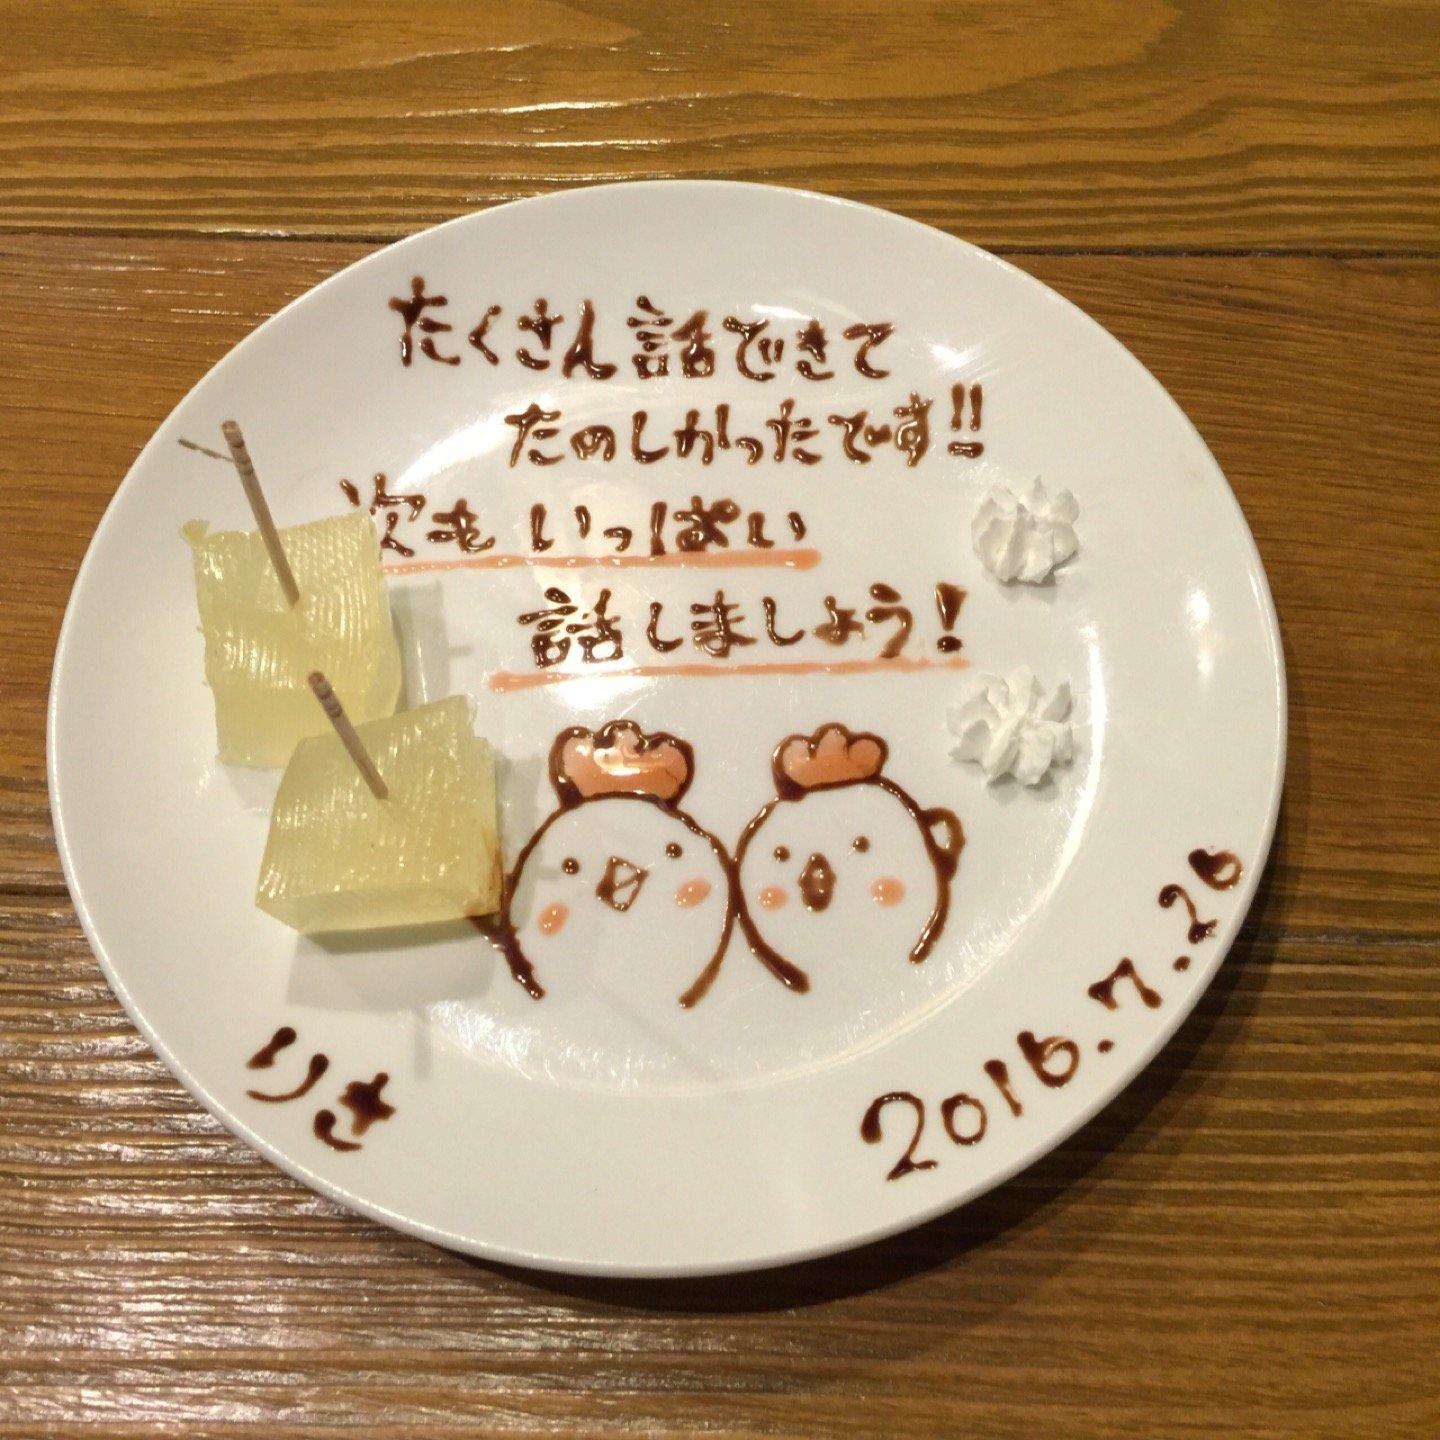 たくさん話できて
たのしかったです!!
次もいっぱい
話しましょう!
りさ
2016.7.26